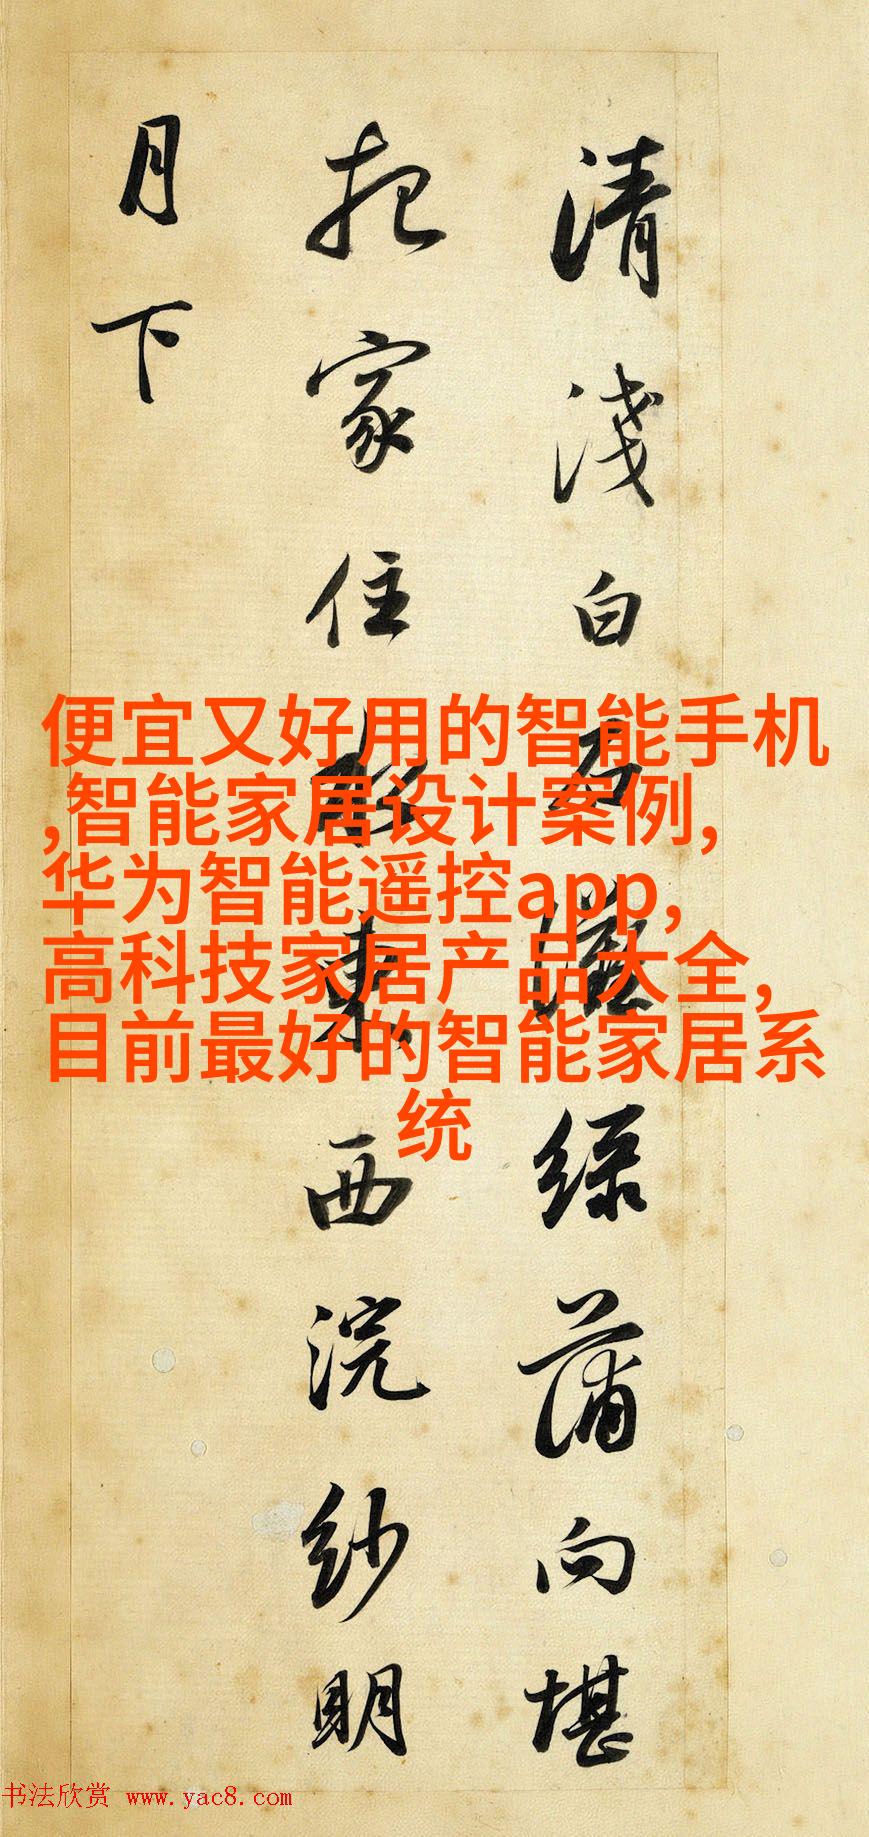 清淺白石灘綠蒲向堪
把家住水東西浣紗明
月下
便宜又好用的智能手机
,智能家居设计案例,
华为智能遥控app,
高科技家居产品大全,
目前最好的智能家居系
统
书法欣赏 www.yac8.com